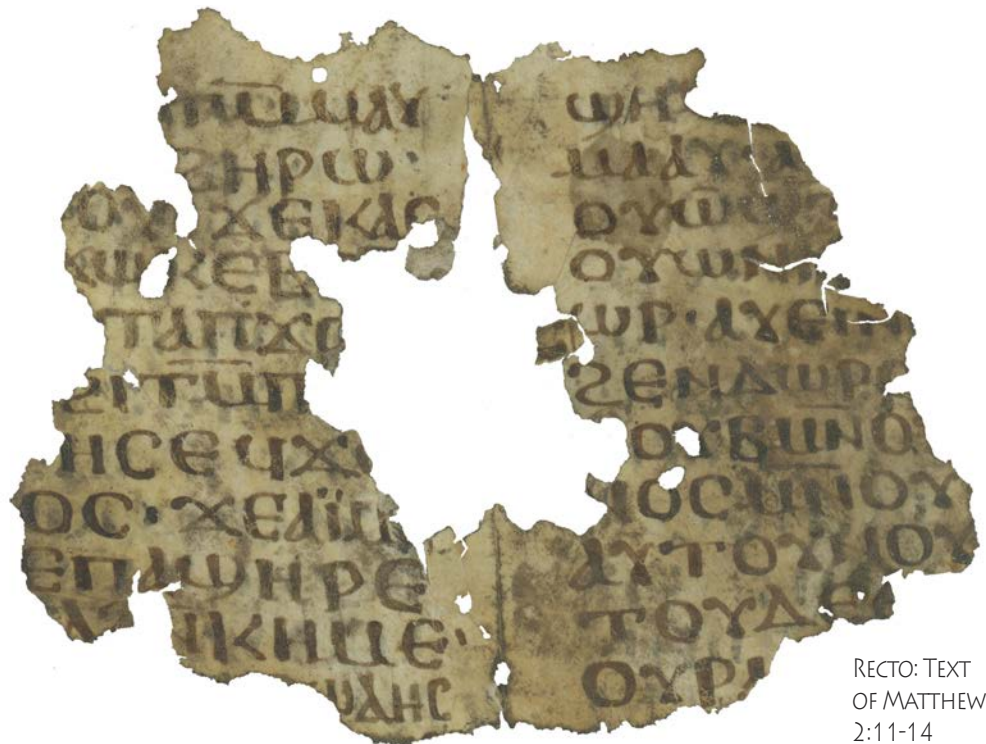 ⲙⲁⲩ
ϩⲏⲣⲱ·
ⲟⲩ ϫⲉⲕⲁⲥ
ϫⲱⲕⲉⲃ
ⲧⲁⲡϫⲟ
ϩⲓⲧⲙ̄ⲡ
ⲏⲥⲉϥϫⲱ
ⲟⲥ·ϫⲉⲁⲓ̈ⲙ
ⲉⲡⲁϣⲏⲣⲉ
ⲛⲕⲏⲙⲉ·
ⲱⲇⲏⲥ
ϣⲏ
ⲙⲁⲁⲩ·ⲁ
ⲟⲩⲱ̄ϣ
ⲟⲩⲱⲛ
ⲱⲣ·ⲁⲩⲉⲓⲛ
ϩⲉⲛⲇⲱⲣ
ⲟⲩⲃⲙ̄ⲛⲟ
ⲛⲟⲥⲙⲛⲟⲩ
ⲁⲩⲧⲟⲩⲛⲟⲩ
ⲧⲟⲩⲇⲉ
ⲟⲩⲣⲁ
RECTO: TEXT
OF MATTHEW
2:11-14